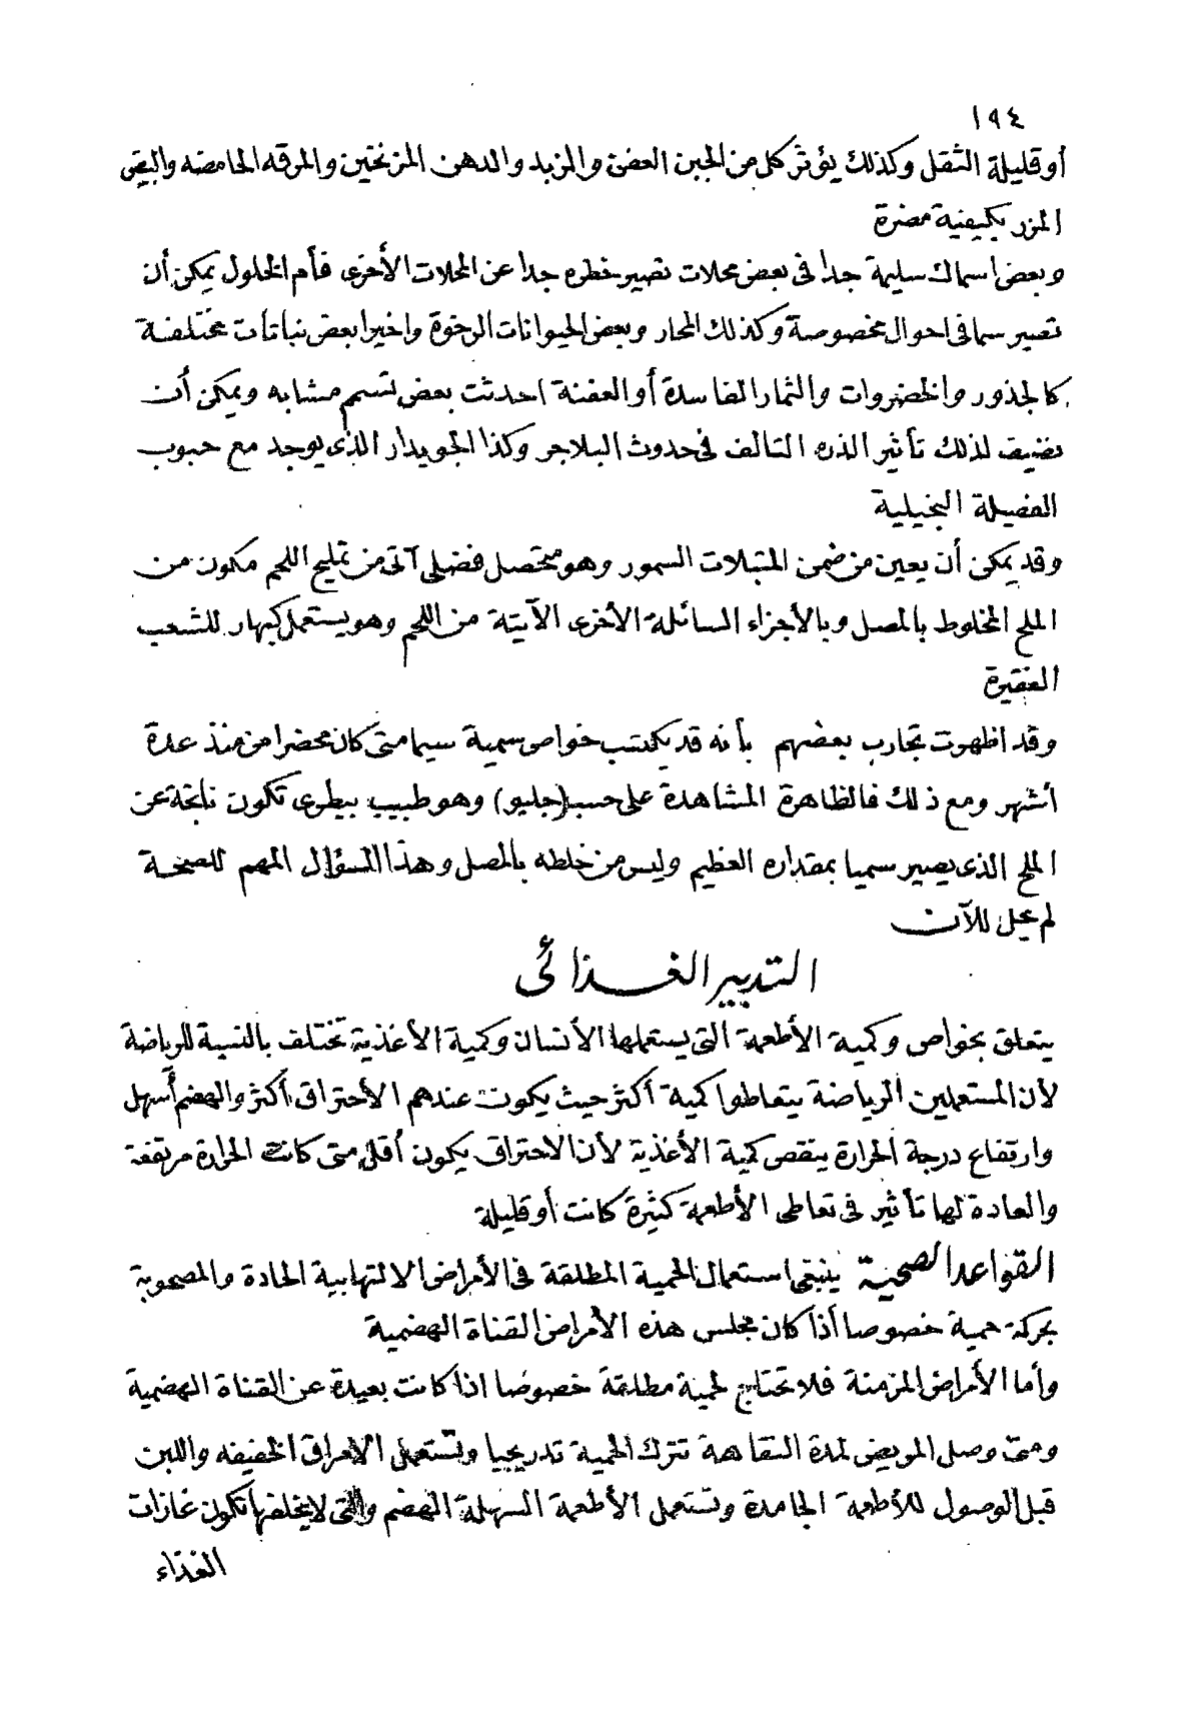 ١٩٤
أو قليلة الثقل وكذلك يؤثر كل من الجبن العفن والزبد والدهن المزنختين والمرقه الحامضه والبيض
المزر بكيفية مضرة
وبعض اسماك سليمة جدا فى بعض محلات تصير خطره جدا عن المحلات الأخرى فأم الخلول يمكن أن
تصير سما فى احوال مخصوصة وكذلك المحار وبعض الحيوانات الرخوة واخيرا بعض نباتات مختلفة
كالجذور والخضروات والثمار الفاسدة أو العفنة احدثت بعض تسمم مشابه ويمكن أن
نضيف لذلك تأثير الذره التالف فى حدوث البلاجر وكذا الجويدار الذى يوجد مع حبوب
الفصيلة النجيلية
وقد يمكن أن يعين من ضمن المتبلات السمور وهو متحصل فضلى آتى من تمليح اللحم مكون من
الملح المخلوط بالمصل وبالأجزاء السائلة الأخرى الآتية من اللحم وهو يستعمل كبهار للشعب
الفقيرة
وقد اظهرت تجارب بعضهم بأنه قد يكتسب خواص سمية سيما متى كان محضرا من منذ عدة
أشهر ومع ذلك فالظاهرة المشاهدة على حسب (جليو) وهو طبيب بيطرى تكون ناتجة عن
الملح الذى يصير سميا بمقداره العظيم وليس من خلطه بالمصل وهذا السؤال المهم للصحة
لم يحل للآن
التدبير الغذائى
يتعلق بخواص وكمية الأطعمة التى يستعملها الأنسان وكمية الأغذية تختلف بالنسبة للرياضة
لأن المستعملين الرياضة يتعاطوا كمية أكثر حيث يكون عندهم الأحتراق أكثر والهضم أسهل
وارتفاع درجة الحرارة ينقص كمية الأغذية لأن الاحتراق يكون أقل متى كانت الحرارة مرتفعة
والعادة لها تأثير فى تعاطى الأطعمة كثيرة كانت أو قليلة
القواعد الصحية ينبغى استعمال الحمية المطلقة فى الأمراض الالتهابية الحادة والمصحوبة
بحركة حمية خصوصا أذا كان مجلس هذه الأمراض القناة الهضمية
وأما الأمراض المزمنة فلا تحتاج لحمية مطلقة خصوصا اذا كانت بعيدة عن القناة الهضمية
ومتى وصل المريض لمدة النقاهة تترك الحمية تدريجيا وتستعمل الأمراق الخفيفه واللبن
قبل الوصول للأطعمة الجامدة وتستعمل الأطعمة السهلة الهضم والتى لا يخلفها تكون غازات
الغذاء